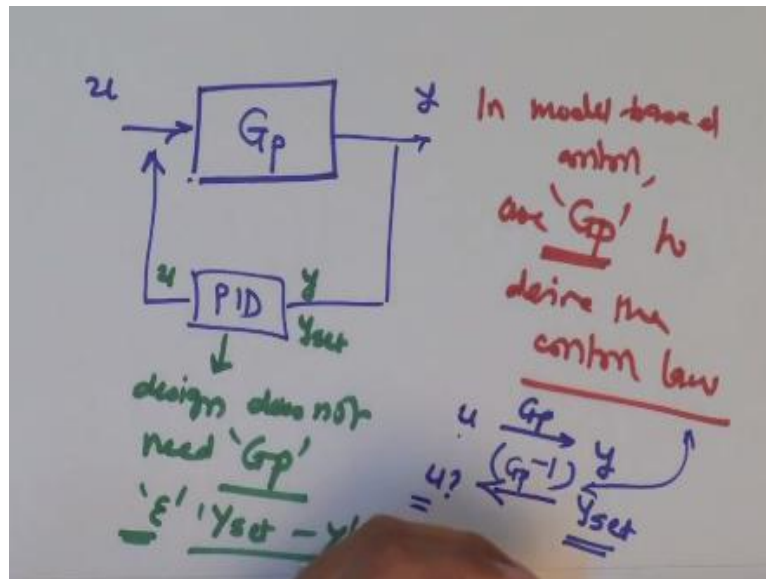 u
Gp
y
u
PID
y
Yset
design does not
need 'Gp'
'ε' 'Yset - Y'
In model based
control,
use 'Gp' to
derive the
control law
u Gp y
u? (Gp^-1) Yset